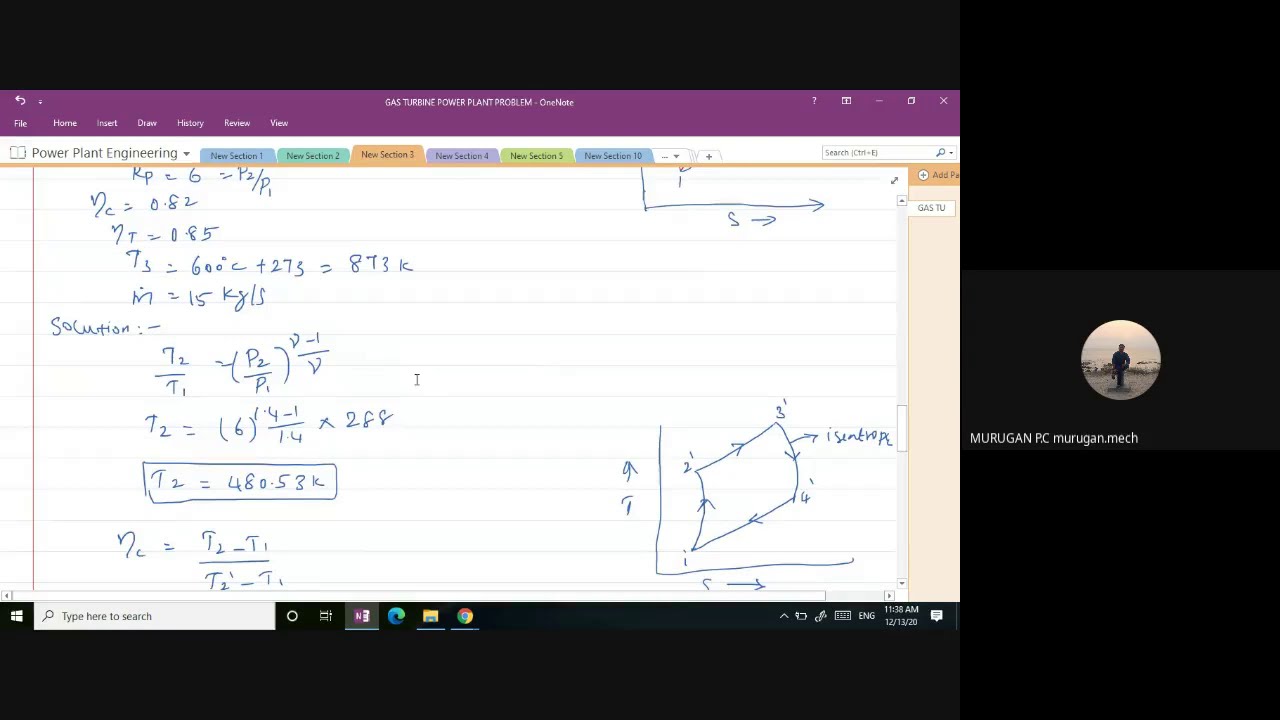 GAS TURBINE POWER PLANT PROBLEM - OneNote
File Home Insert Draw History Review View
Power Plant Engineering New Section 1 New Section 2 New Section 3 New Section 4 New Section 5 New Section 10 ... Search (Ctrl+E)
Add Pa
GAS TU
Rp = 6 = P2/P1
ηc = 0.82
ηT = 0.85
T3 = 600°C + 273 = 873 K
ṁ = 15 Kg/s
Solution :-
T2/T1 = (P2/P1)^(γ-1)/γ
T2 = (6)^(1.4-1)/1.4 × 288
T2 = 480.53 K
ηc = (T2 - T1)/(T2' - T1)
1
S →
3'
isentropic
2'
T
4'
1
S →
MURUGAN P.C murugan.mech
Type here to search
ENG
11:38 AM
12/13/20